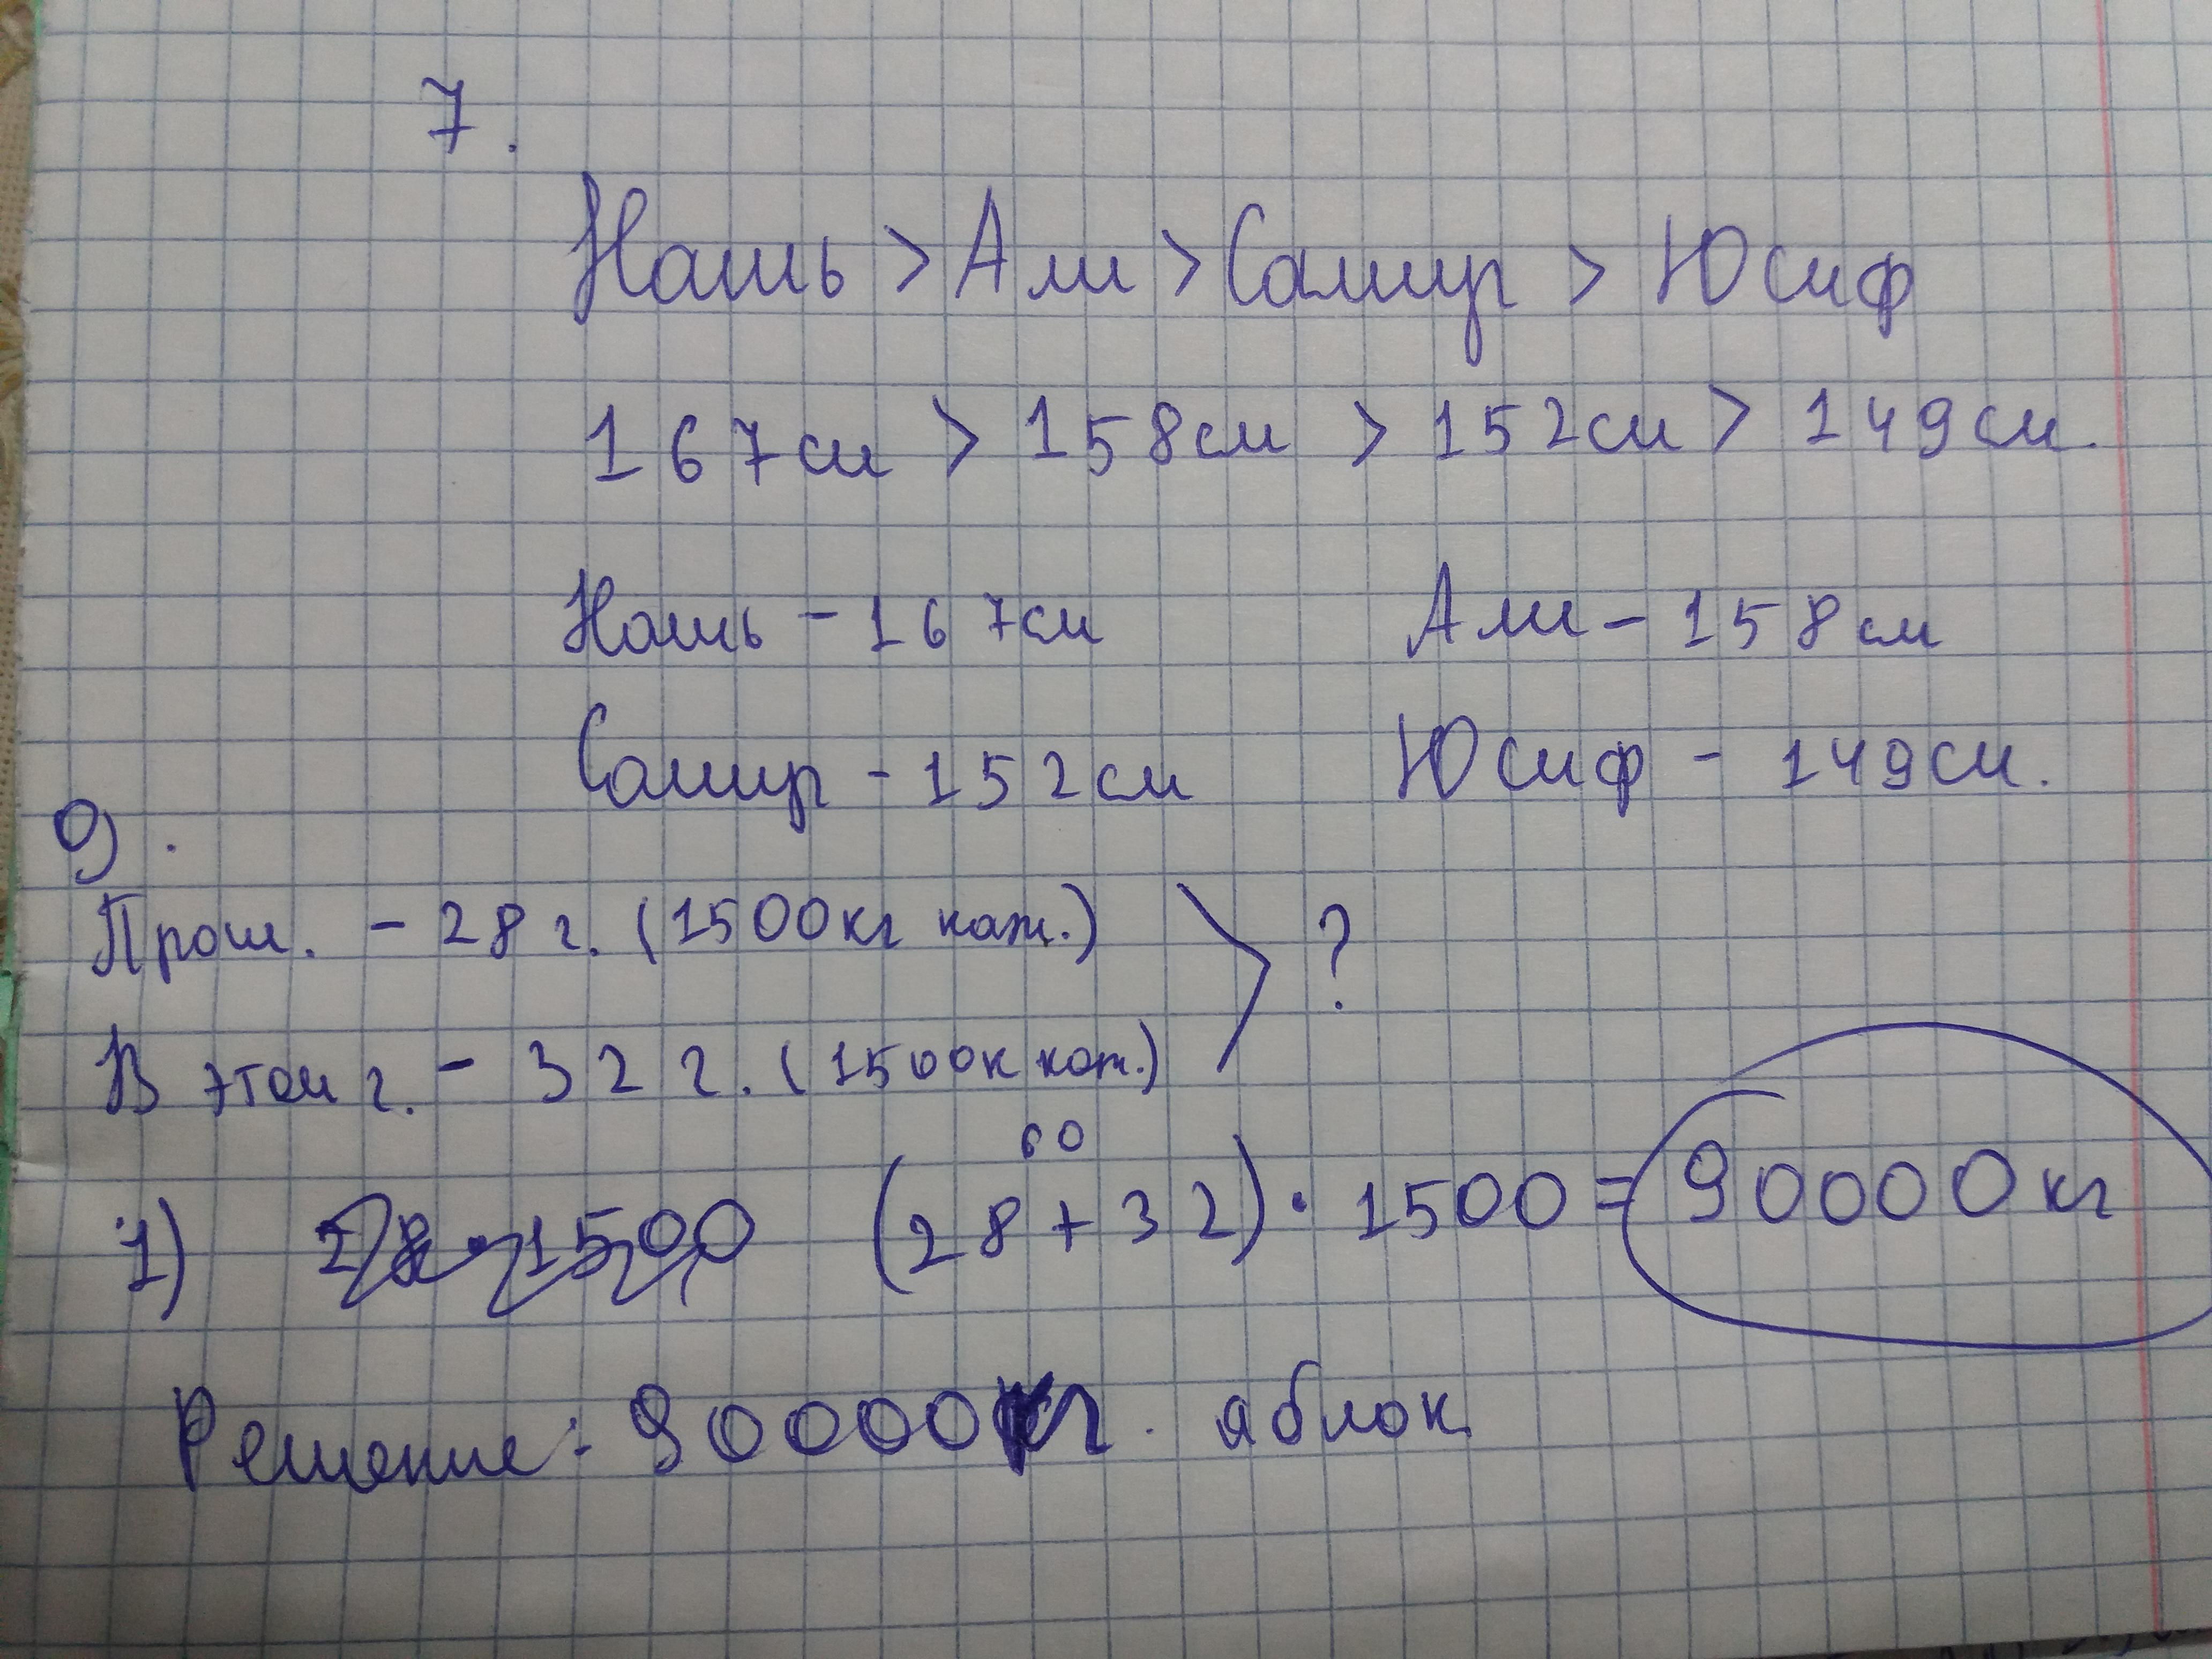 7.
Наиль > Али > Самир > Юсиф
167см > 158см > 152см > 149см.
Наиль - 167см Али - 158см
Самир - 152см Юсиф - 149см.
9.
Прош. - 28 г. (1500кг каж.) ?
В этом г. - 32 г. (1500к каж.)
60
1) 28 · 1500 (28 + 32) · 1500 = 90000 кг
Решение: 90000кг. яблок